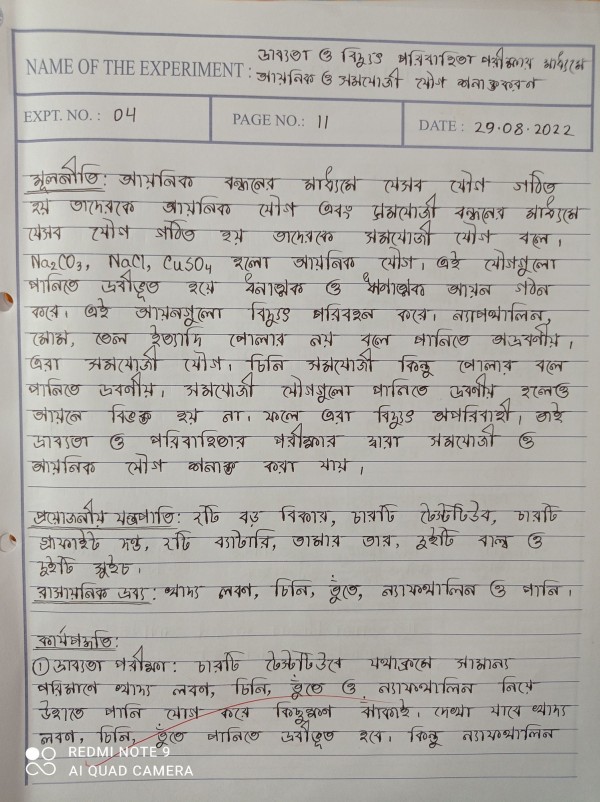 NAME OF THE EXPERIMENT : দ্রাব্যতা ও বিদ্যুৎ পরিবাহিতা পরীক্ষার মাধ্যমে
আয়নিক ও সমযোজী যৌগ শনাক্তকরণ
EXPT. NO. : 04
PAGE NO.: 11
DATE : 29.08.2022
মূলনীতি: আয়নিক বন্ধনের মাধ্যমে যেসব যৌগ গঠিত
হয় তাদেরকে আয়নিক যৌগ এবং সমযোজী বন্ধনের মাধ্যমে
যেসব যৌগ গঠিত হয় তাদেরকে সমযোজী যৌগ বলে।
Na₂CO₃, NaCl, CuSO₄ হলো আয়নিক যৌগ। এই যৌগগুলো
পানিতে দ্রবীভূত হয়ে ধনাত্মক ও ঋণাত্মক আয়ন গঠন
করে। এই আয়নগুলো বিদ্যুৎ পরিবহন করে। ন্যাপথালিন,
মোম, তেল ইত্যাদি পোলার নয় বলে পানিতে অদ্রবণীয়।
এরা সমযোজী যৌগ। চিনি সমযোজী কিন্তু পোলার বলে
পানিতে দ্রবণীয়। সমযোজী যৌগগুলো পানিতে দ্রবণীয় হলেও
আয়নে বিভক্ত হয় না। ফলে এরা বিদ্যুৎ অপরিবাহী। তাই
দ্রাব্যতা ও পরিবাহিতার পরীক্ষার দ্বারা সমযোজী ও
আয়নিক যৌগ শনাক্ত করা যায়।
প্রয়োজনীয় যন্ত্রপাতি: ২টি বড় বিকার, চারটি টেস্টটিউব, চারটি
গ্রাফাইট দণ্ড, ২টি ব্যাটারি, তামার তার, দুইটি বাল্ব ও
দুইটি সুইচ।
রাসায়নিক দ্রব্য: খাদ্য লবণ, চিনি, তুঁতে, ন্যাফথালিন ও পানি।
কার্যপদ্ধতি:
① দ্রাব্যতা পরীক্ষা: চারটি টেস্টটিউবে যথাক্রমে সামান্য
পরিমাণে খাদ্য লবণ, চিনি, তুঁতে ও ন্যাফথালিন নিয়ে
উহাতে পানি যোগ করে কিছুক্ষণ ঝাঁকাই। দেখা যাবে খাদ্য
লবণ, চিনি, তুঁতে পানিতে দ্রবীভূত হবে। কিন্তু ন্যাফথালিন
REDMI NOTE 9
AI QUAD CAMERA